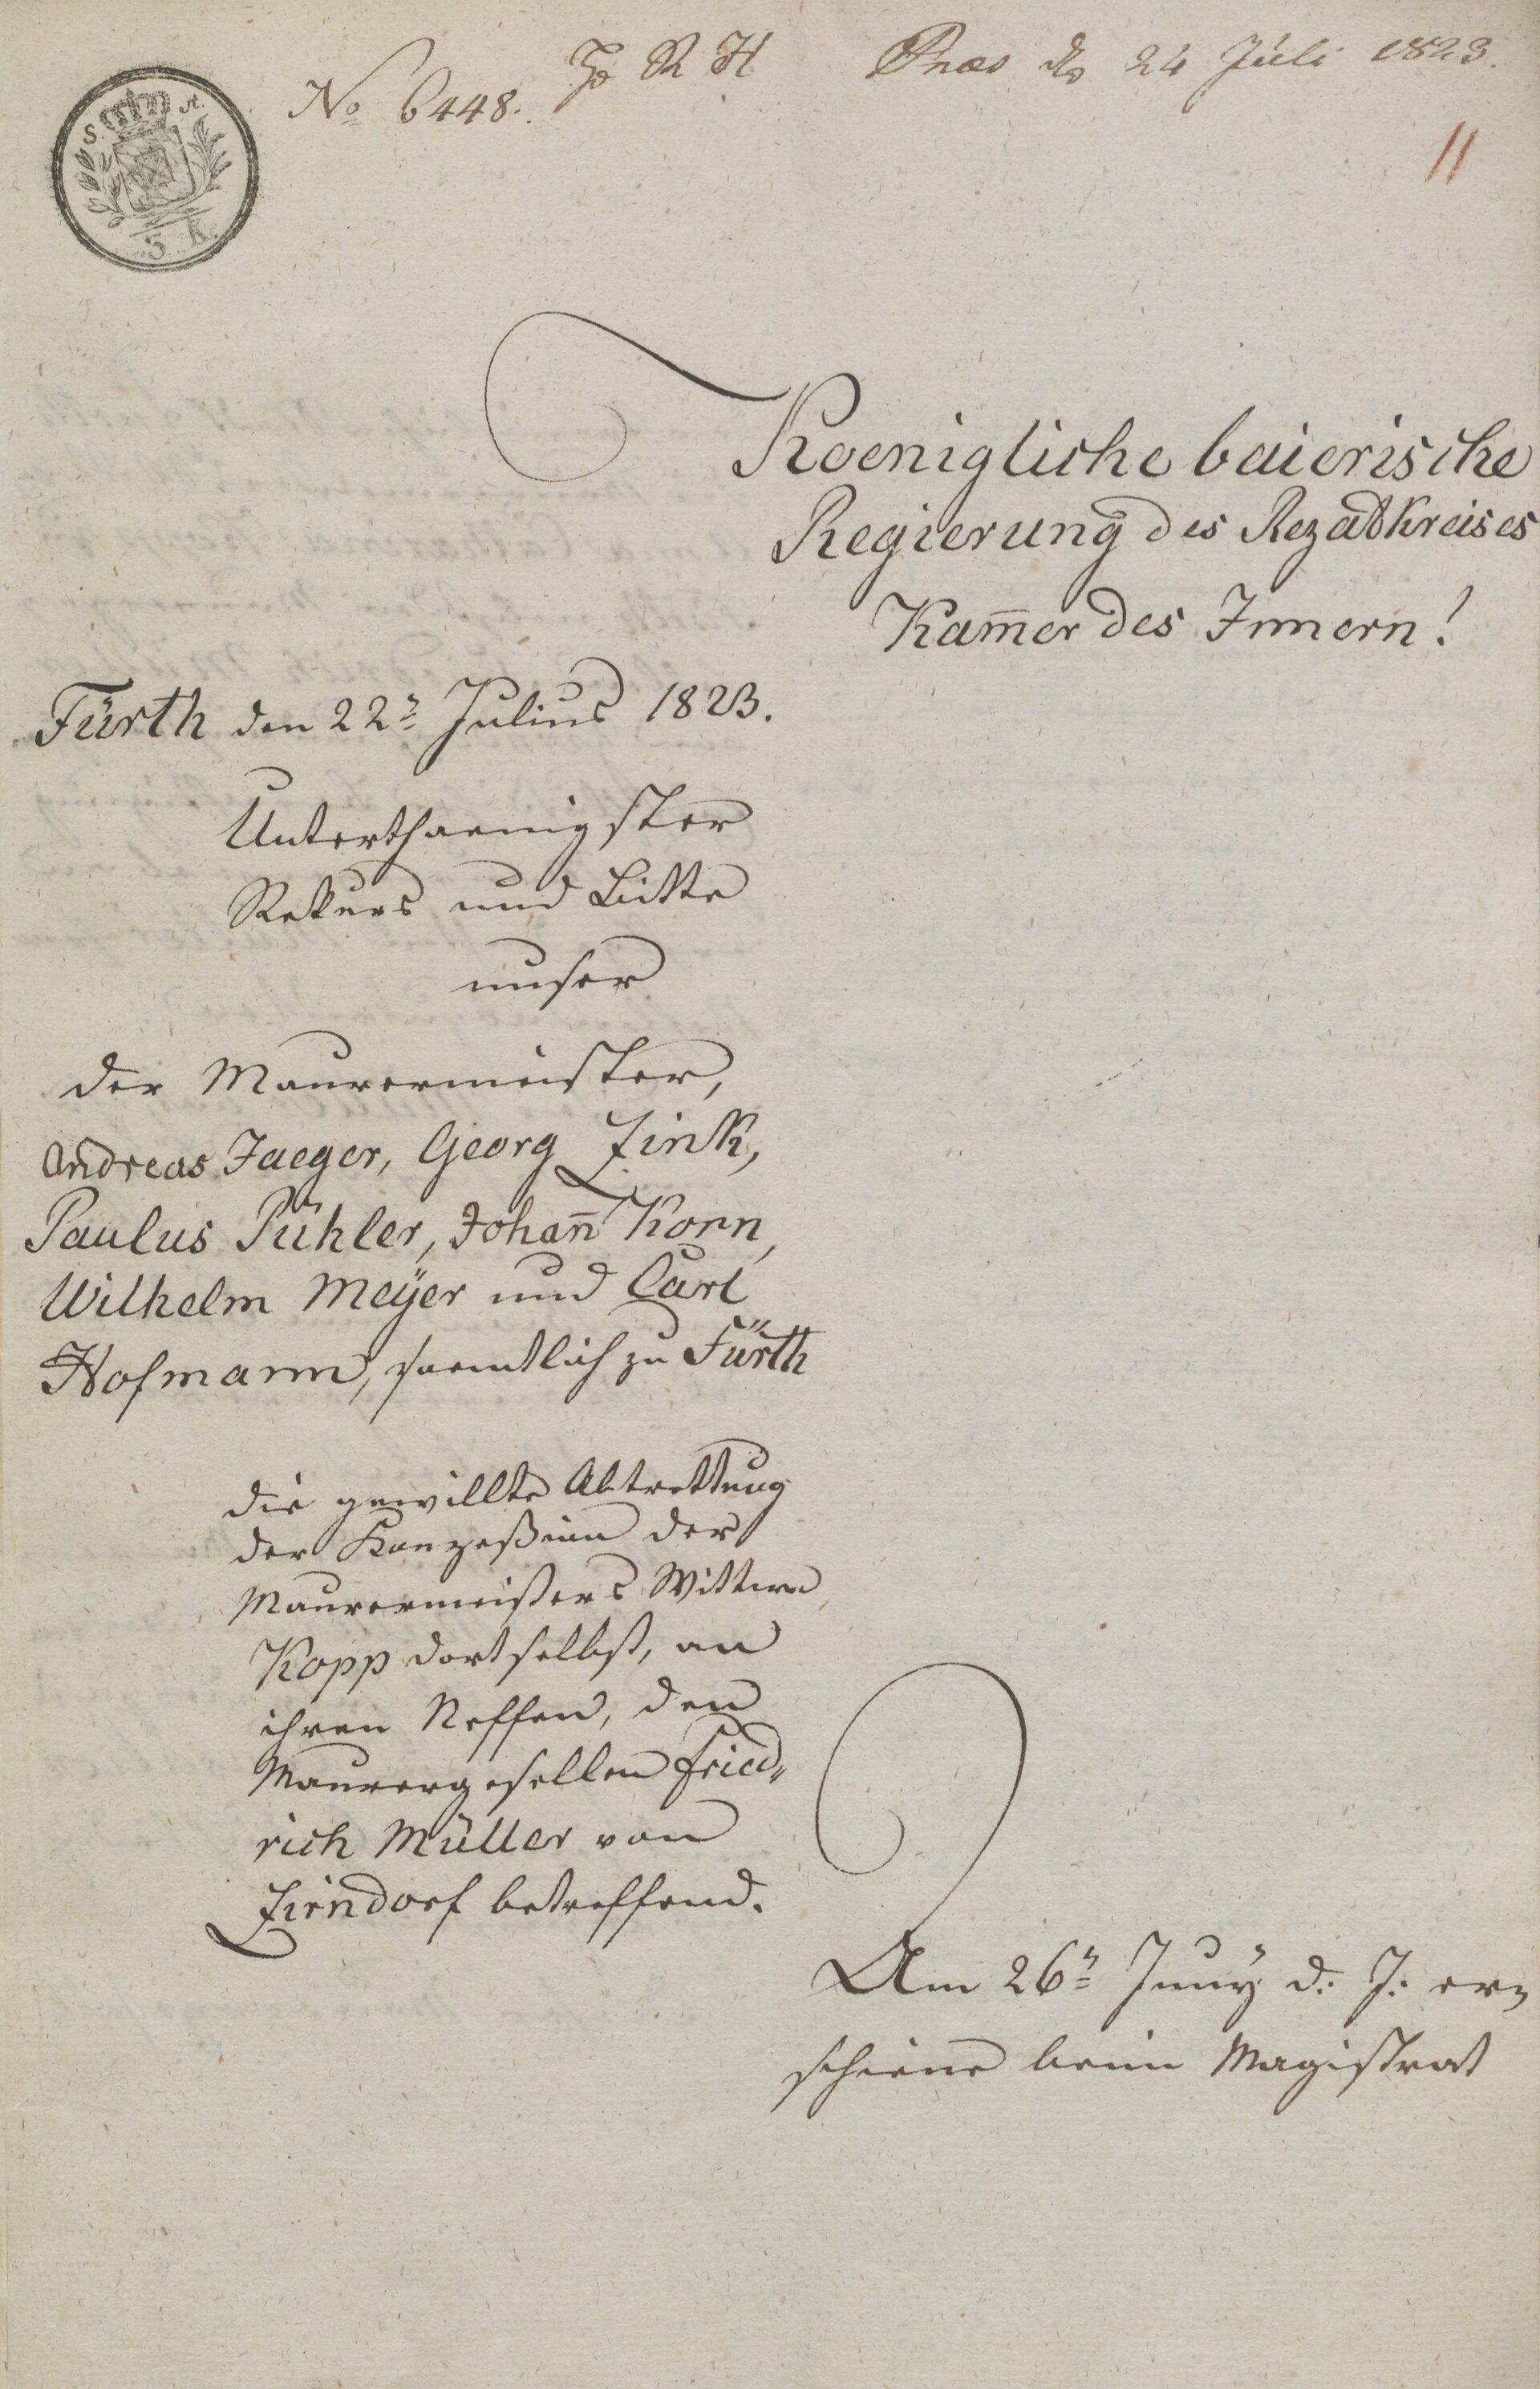 No 6448.
R H
Præs d 24 Juli 1823.
11
S. A.
5 K.
Koenigliche baierische
Regierung des Rezatkreises
Kam̄er des Innern!
Fürth den 22n Julius 1823.
Unterthaenigster
Rekurs und Bitte
unser
der Maurermeister,
Andreas Jaeger, Georg Zink,
Paulus Pühler, Johan̄ Korn,
Wilhelm Meÿer und Carl
Hofmann, saemtlich zu Fürth
die gewillte Abtrettung
der Konzeßion der
Maurermeisters Wittwe
Kopp dortselbst, an
ihren Neffen, den
Maurergesellen Fried„
rich Müller von
Zirndorf betreffend.
Am 26n Junÿ d: J: er„
schiene beim Magistrat